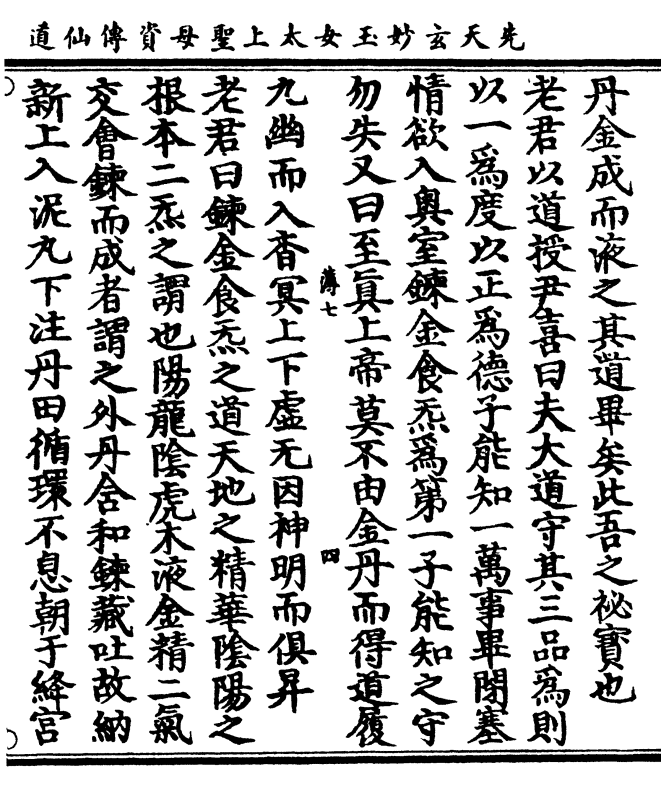 先天玄妙玉女太上聖母資傳仙道
丹金成而液之其道畢矣此吾之祕寶也
老君以道授尹喜曰夫大道守其三品爲則
以一爲度以正爲德子能知一萬事畢閉塞
情欲入奧室鍊金食炁爲第一子能知之守
勿失又曰至眞上帝莫不由金丹而得道履
薄七 四
九幽而入杳冥上下虛无因神明而俱昇
老君曰鍊金食炁之道天地之精華陰陽之
根本二炁之謂也陽龍陰虎木液金精二氣
交會鍊而成者謂之外丹含和鍊藏吐故納
新上入泥丸下注丹田循環不息朝于絳宮